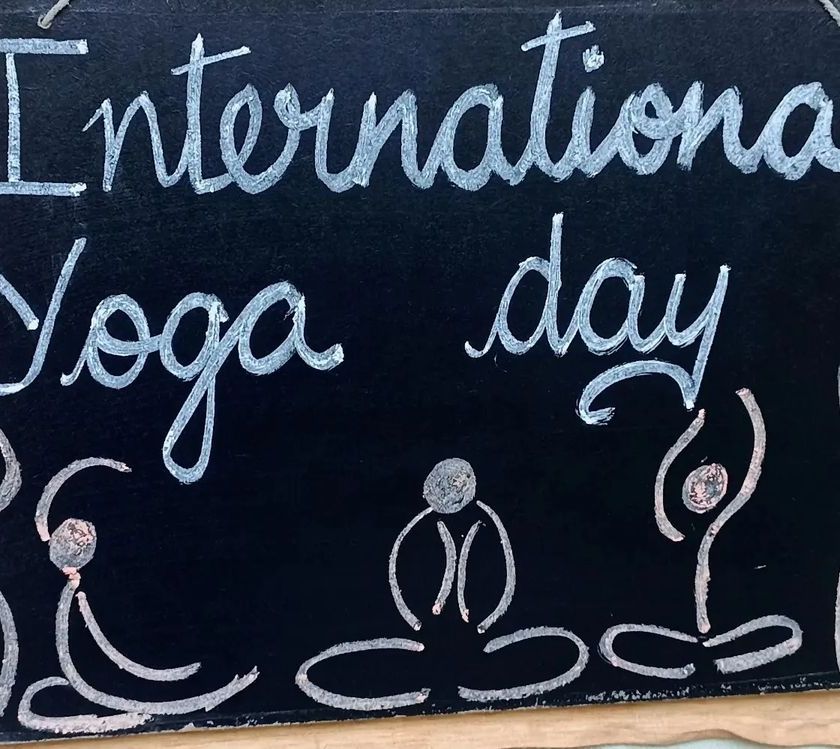 Internationa
Yoga day